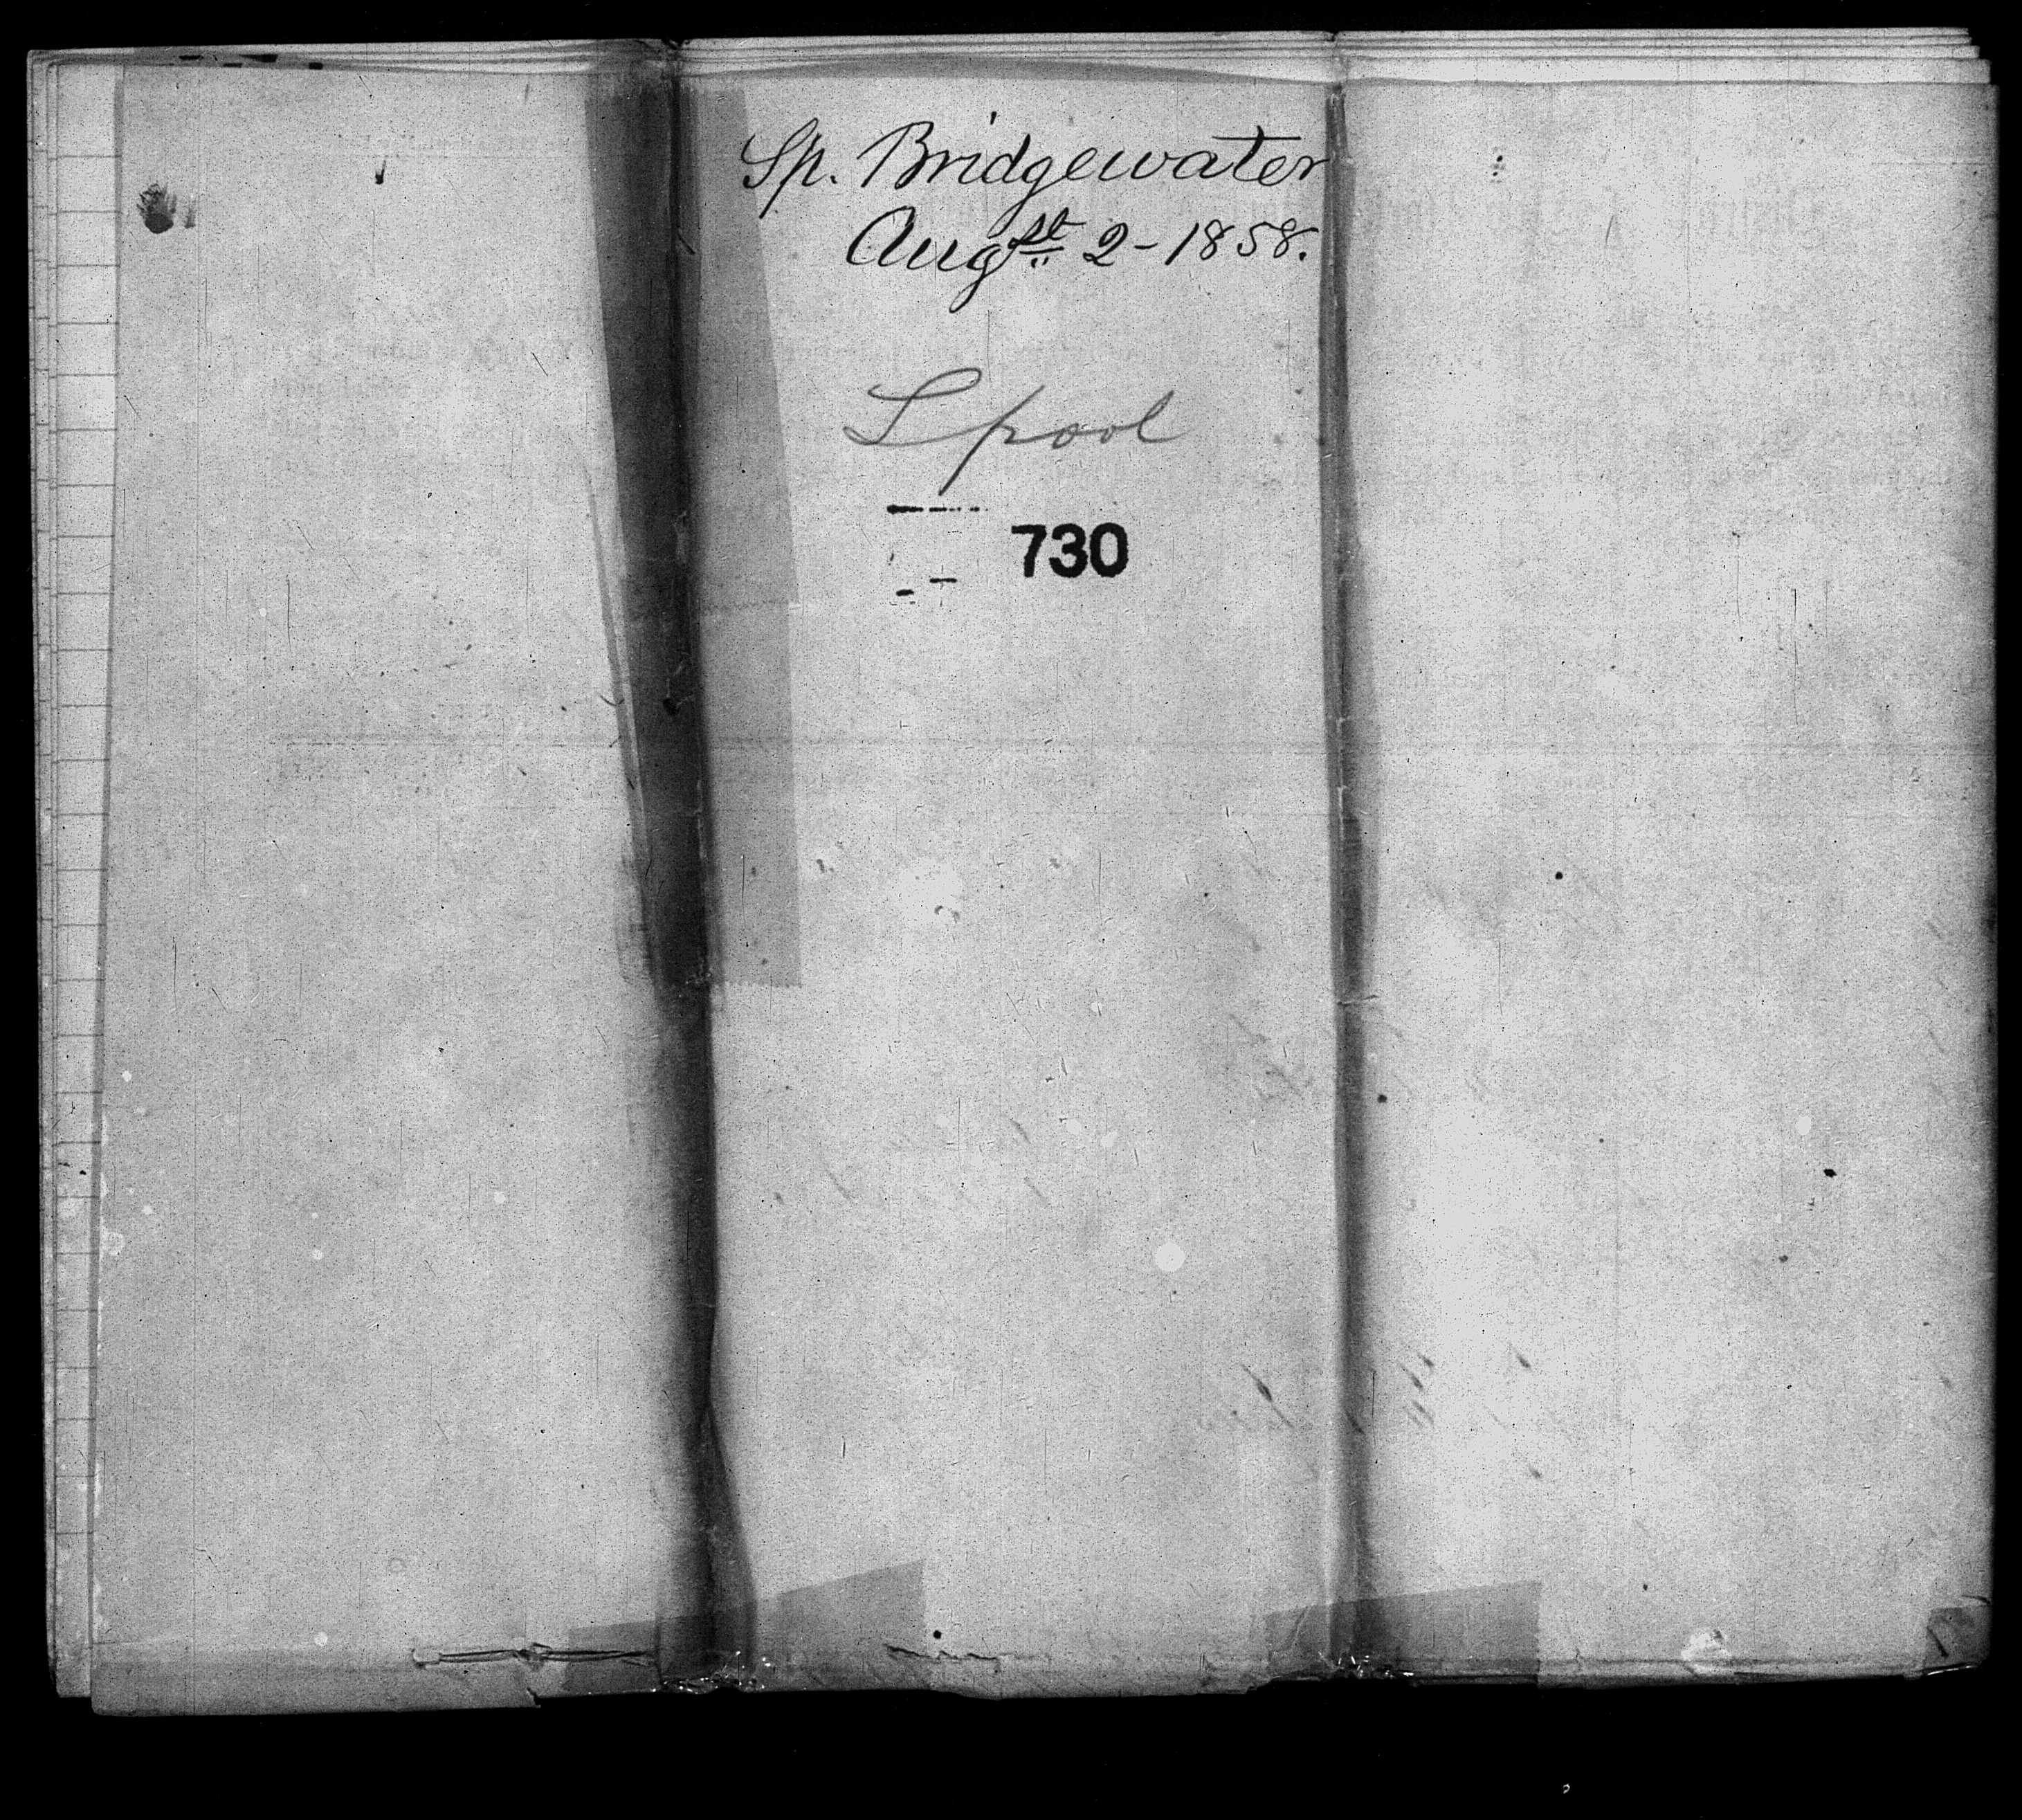 Sp. Bridgewater
Augst 2 - 1858.
Lpool
730